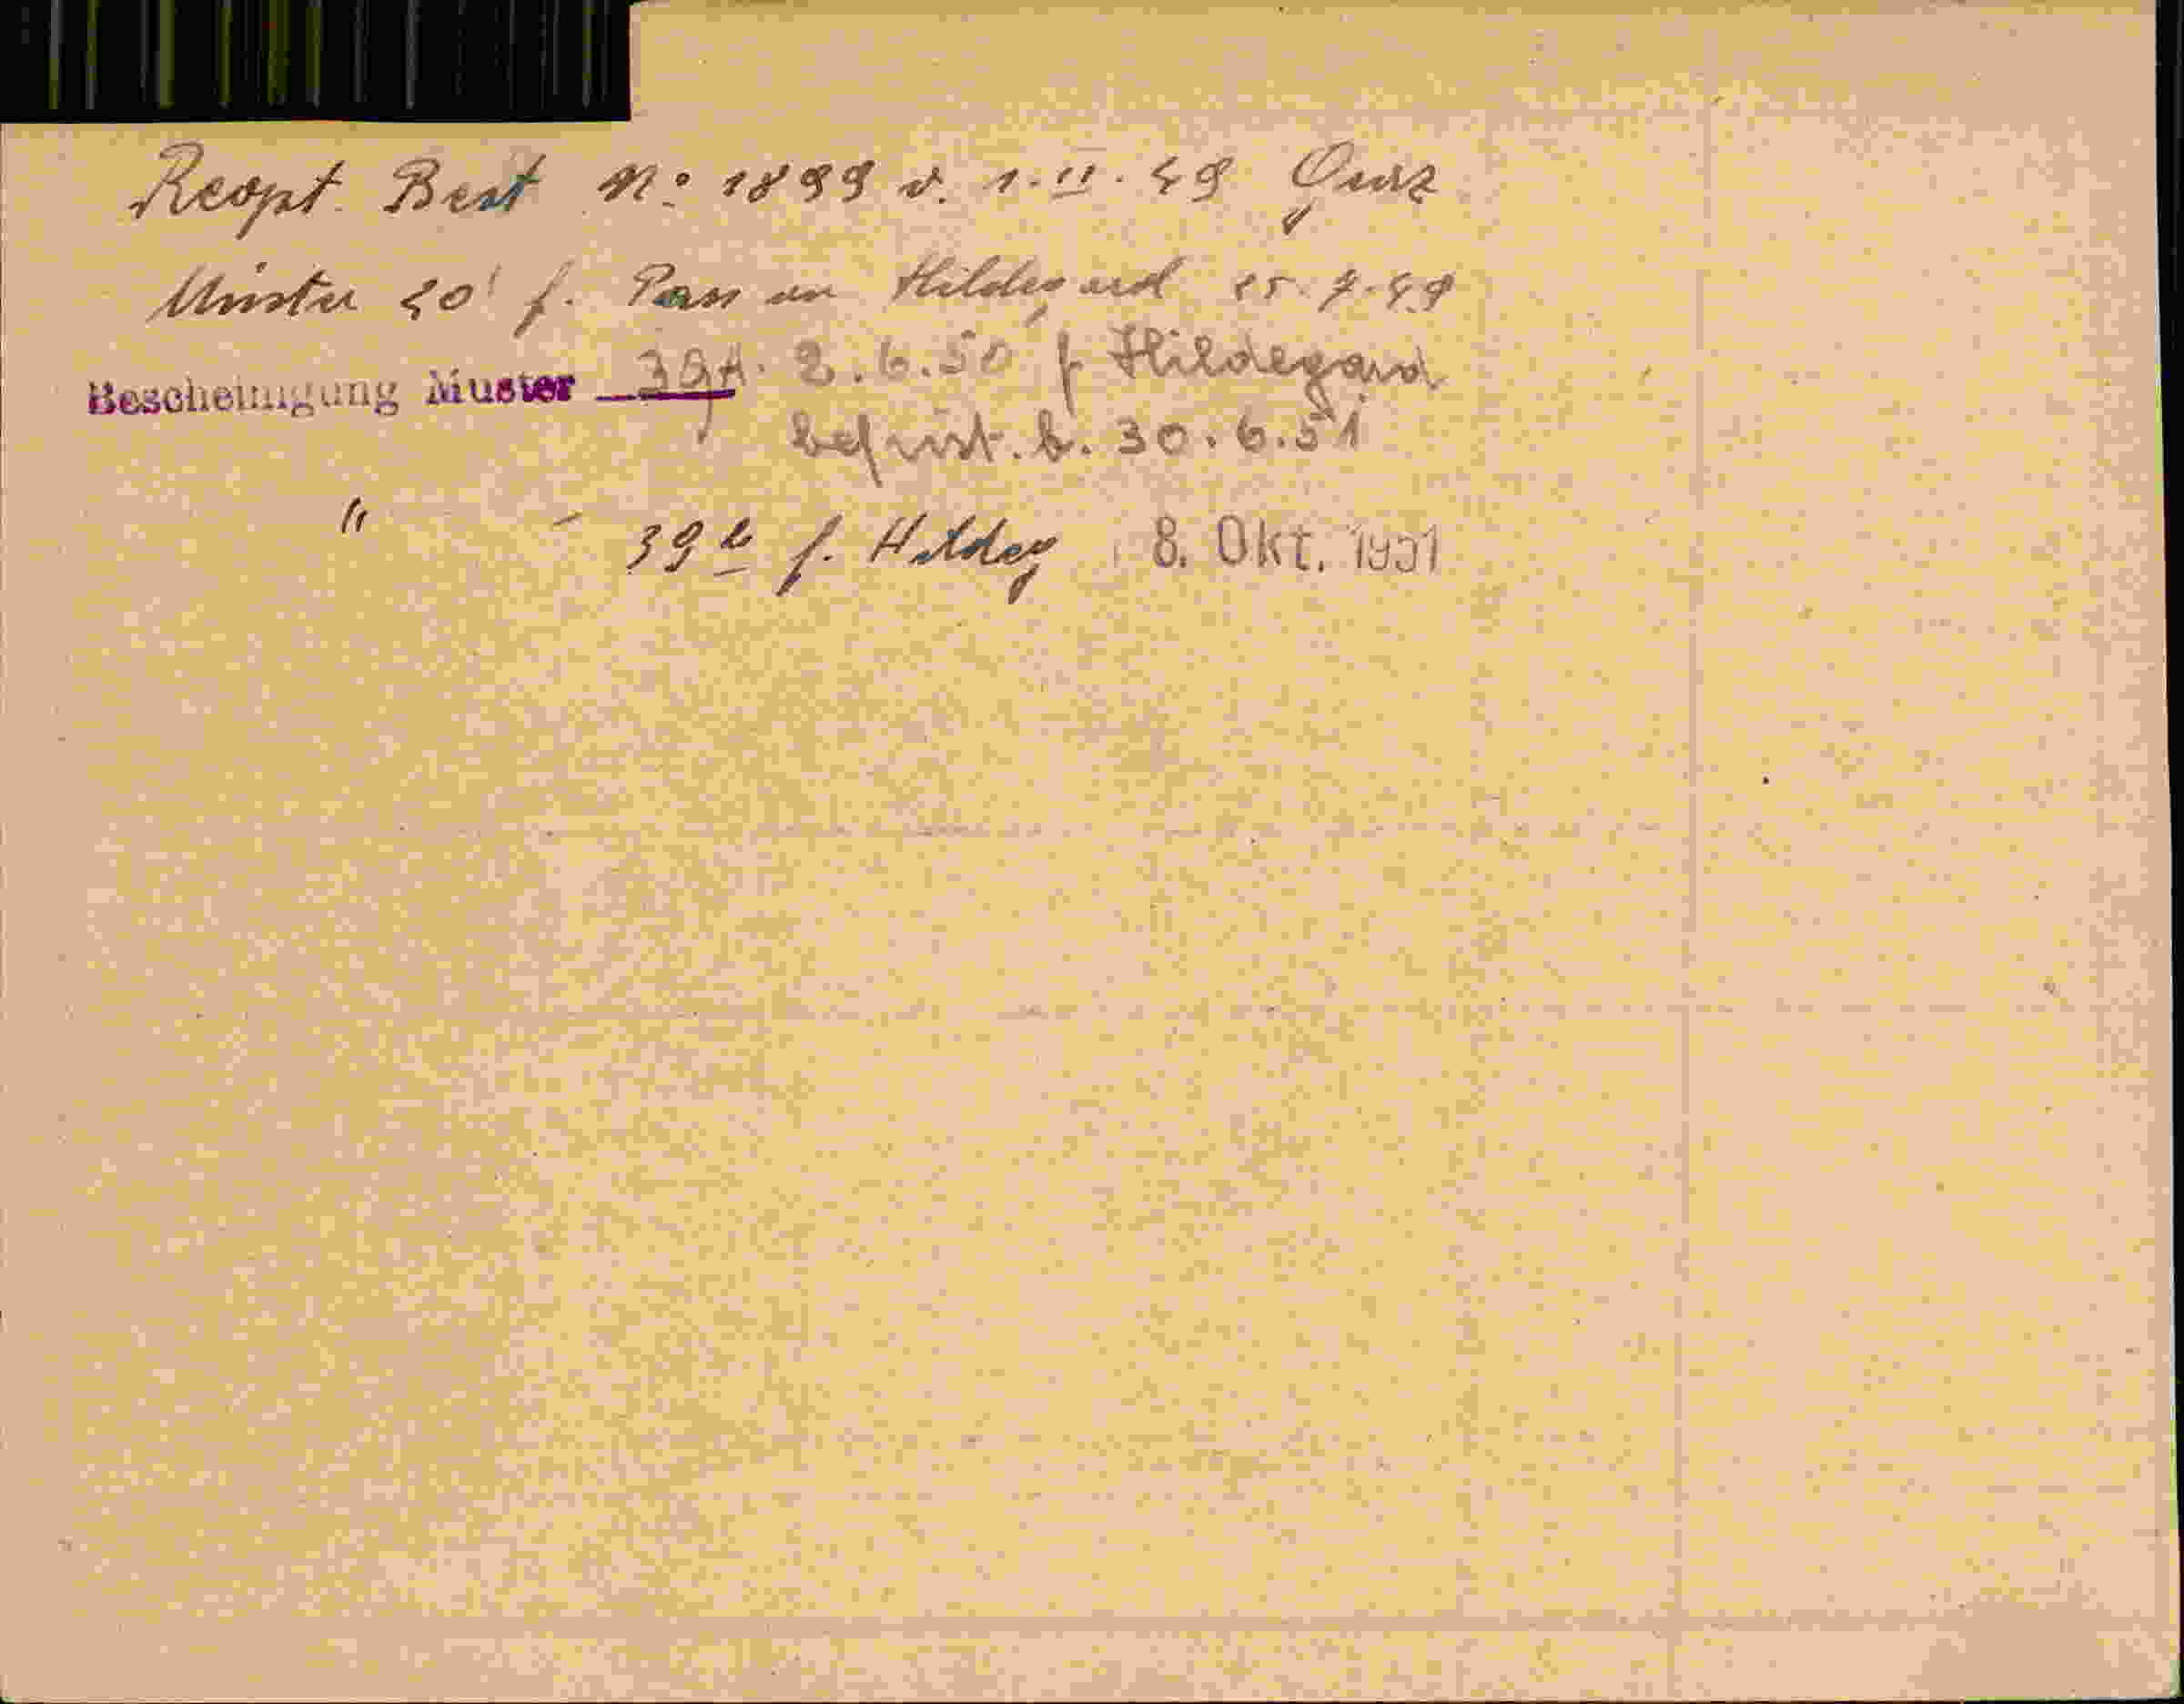 Reopt. Best. No 1899 v. 1.II.49
Muster 20' f. Pass an Hildegard 25.7.49
Bescheinigung Muster 39A. 2.6.50 f Hildegard
befrist. b. 30.6.51
" - 39 b f. Hildeg 8. Okt. 1951